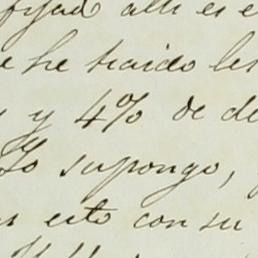 fijad alli es e
e he traido les
y 4% de de
Yo supongo,
esto con su